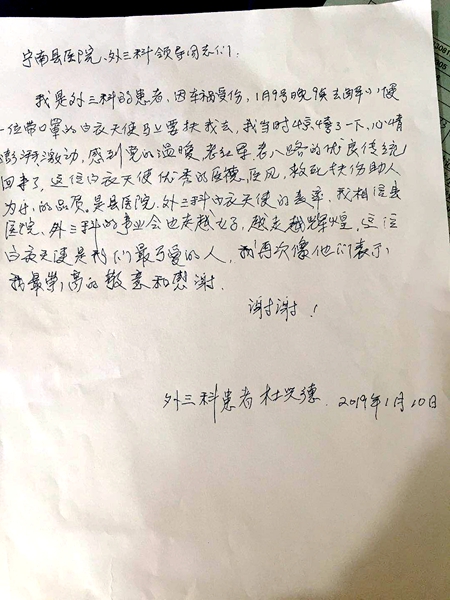 宁南县医院、外三科领导同志们：
我是外三科的患者，因车祸受伤，1月9号晚9点去解小便
一位带口罩的白衣天使马上要扶我去，我当时4点愣了一下、心情
澎湃激动，感到党的温暖，老红军老八路的优良传统
回来了，这位白衣天使优秀的医德、医风，救死扶伤助人
为乐，的品质。是县医院，外三科白衣天使的表率，我相信县
医院，外三科的事业会也走越飞了，越走越辉煌，这位
白衣天使是我们最可爱的人，我再次像他们表示
我最崇高的敬意和感谢。
谢谢！
外三科患者 杜兴德 2019年1月10日